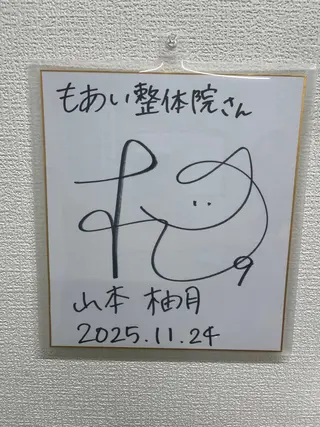 もあい整体院さん
山本 柚月
2025.11.24